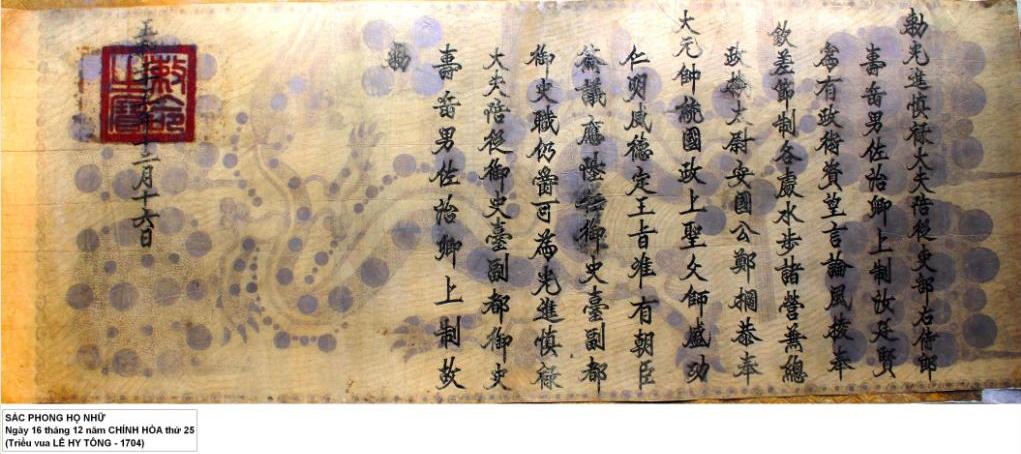 勅光進慎祿大夫陪從吏部右侍郎
壽岳男佐治卿上制汝廷賢
為有政術資望言論風稜奉
欽差節制各處水步諸營兼總
政柄太尉安國公鄭棡恭奉
大元帥統國政上聖父師盛功
仁明威德定王旨准有朝臣
僉議應陞御史臺副都
御史職仍爵可為光進慎祿
大夫陪從御史臺副都御史
壽岳男佐治卿上制故
勅
正和二十五年十二月十六日
敕命之寶
SẮC PHONG HỌ NHỮ
Ngày 16 tháng 12 năm CHÍNH HÒA thứ 25
(Triều vua LÊ HY TÔNG - 1704)